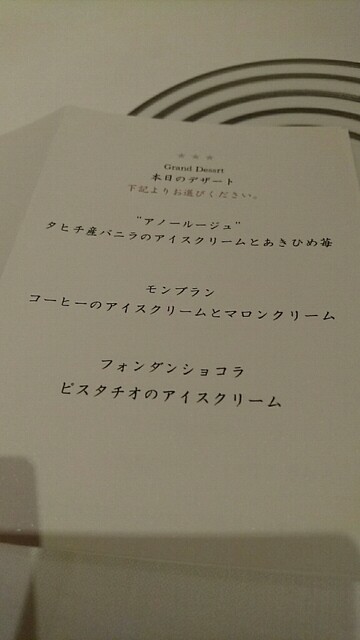 Grand Desart
本日のデザート
下記よりお選びください。
"アノールージュ"
タヒチ産バニラのアイスクリームとあきひめ苺
モンブラン
コーヒーのアイスクリームとマロンクリーム
フォンダンショコラ
ピスタチオのアイスクリーム